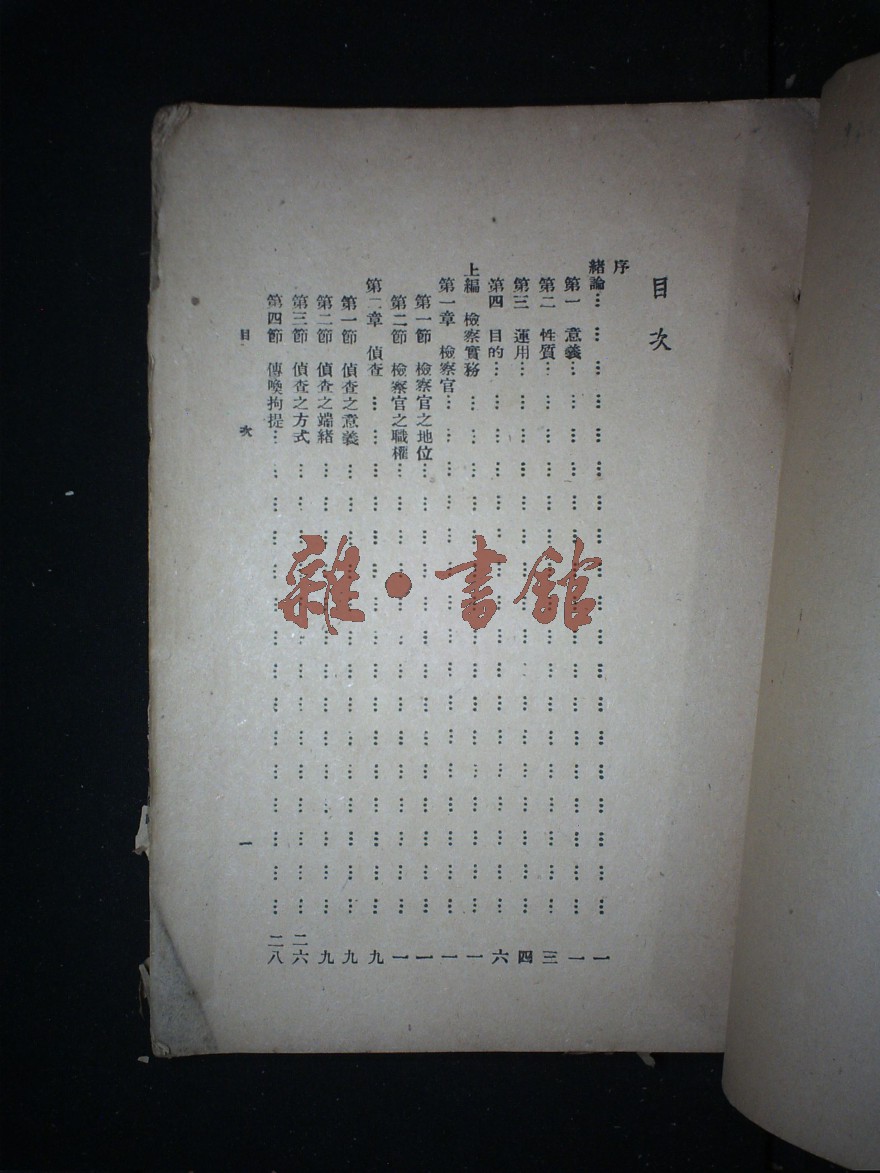 目次
序
緒論………………………………………………一
第一 意義………………………………………………一
第二 性質………………………………………………三
第三 運用………………………………………………四
第四 目的………………………………………………六
上編 檢察實務………………………………………………一
第一章 檢察官………………………………………………一
第一節 檢察官之地位………………………………………………一
第二節 檢察官之職權………………………………………………一
第二章 偵查………………………………………………九
第一節 偵查之意義………………………………………………九
第二節 偵查之端緒………………………………………………九
第三節 偵查之方式………………………………………………二六
第四節 傳喚拘提………………………………………………二八
目次 一
雜·書館